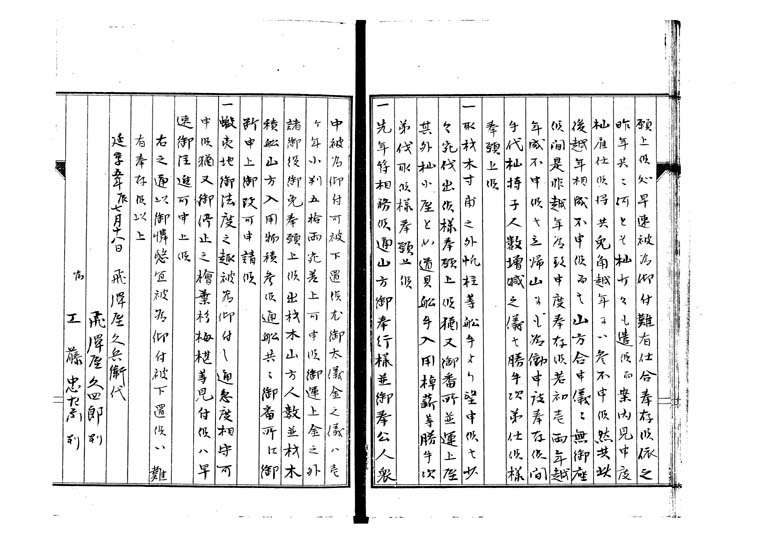 願上候処早速被為仰付難有仕合奉存候依之
昨年共ニ河とそ杣方々も遣候而案内見申度
杣雇仕候得共兎角越年ニハ参不申候然共此
後越年相成不申候而ハ山方合申儀ニ無御座
候間是非越年為致申度奉存候若初壱両年越
年成不申候ハヽ立帰山ニも為働申度奉存候間
年代杣持子人数増減之儀ハ勝手次第仕候様
奉願上候
一取材木寸甫之外帆柱等船手より望申候ハヽ少
々宛伐出候様奉願上候猶又御番所並運上屋
其外杣小屋とい道具船手入用棹薪等勝手次
第伐取候様奉願上候
一先年符相勝候通山方御奉行様並御奉公人衆
中被為仰付可被下置候尤御太儀金之儀ハ壱
ケ年小判五拾両宛差上可申候御運上金之外
諸御役御免奉願上候出材木山方人数並材木
積船山方入用物積参候通船共ニ御番所江御
断申上御改可申請候
一蝦夷地御法度之趣被為仰付候通急度相守可
申候猶又御停止之檜葉杉梅椹等見付候ハ早
速御注進可申上候
右之通以御憐愍宜被為仰付被下置候ハ難
有奉存候以上
延享五年辰七月十八日 飛騨屋久兵衛代
飛騨屋久四郎判
為 工藤忠左衛門判